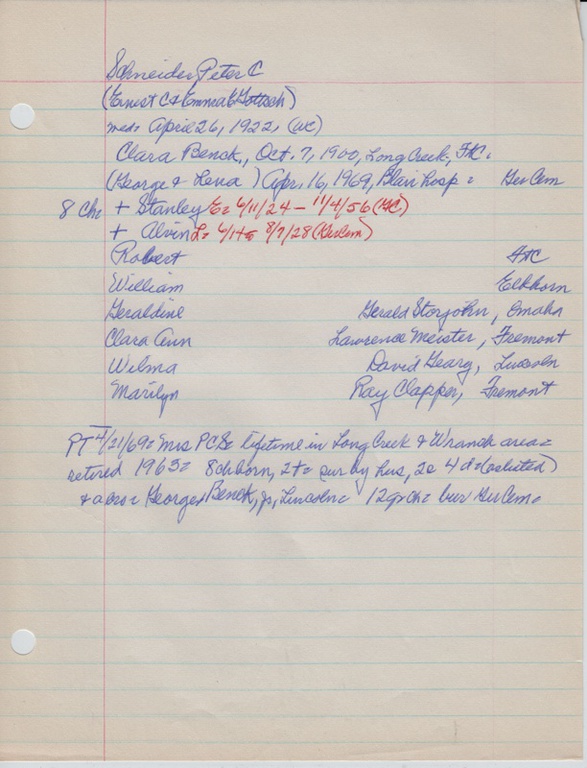 Schneider Peter C
(Ernest C & Emma E Gottsch)
med: April 26, 1922, (WC)
Clara Benck, Oct. 7, 1900, Long Creek, FtC.
(George & Lena ) Apr. 16, 1969, Blair hosp = Ger Cem
8 Chr + Stanley E= 4/11/24 - 11/4/56
+ Alvin L= 8/7/28 (Ger Cem)
Robert FtC
William Elkhorn
Geraldine Gerald Storjohn, Omaha
Clara Ann Lawrence Meister, Fremont
Wilma David Geary, Lincoln
Marilyn Ray Clapper, Fremont
PT 4/21/69= Mrs PCS= lifetime in Long Creek & area=
retired 1963= 8 ch born, 2+= sur by hus, 2s 4 d=
& a bro= George Benck, Jr, Lincoln= 12 gr ch= bur Ger Cem=